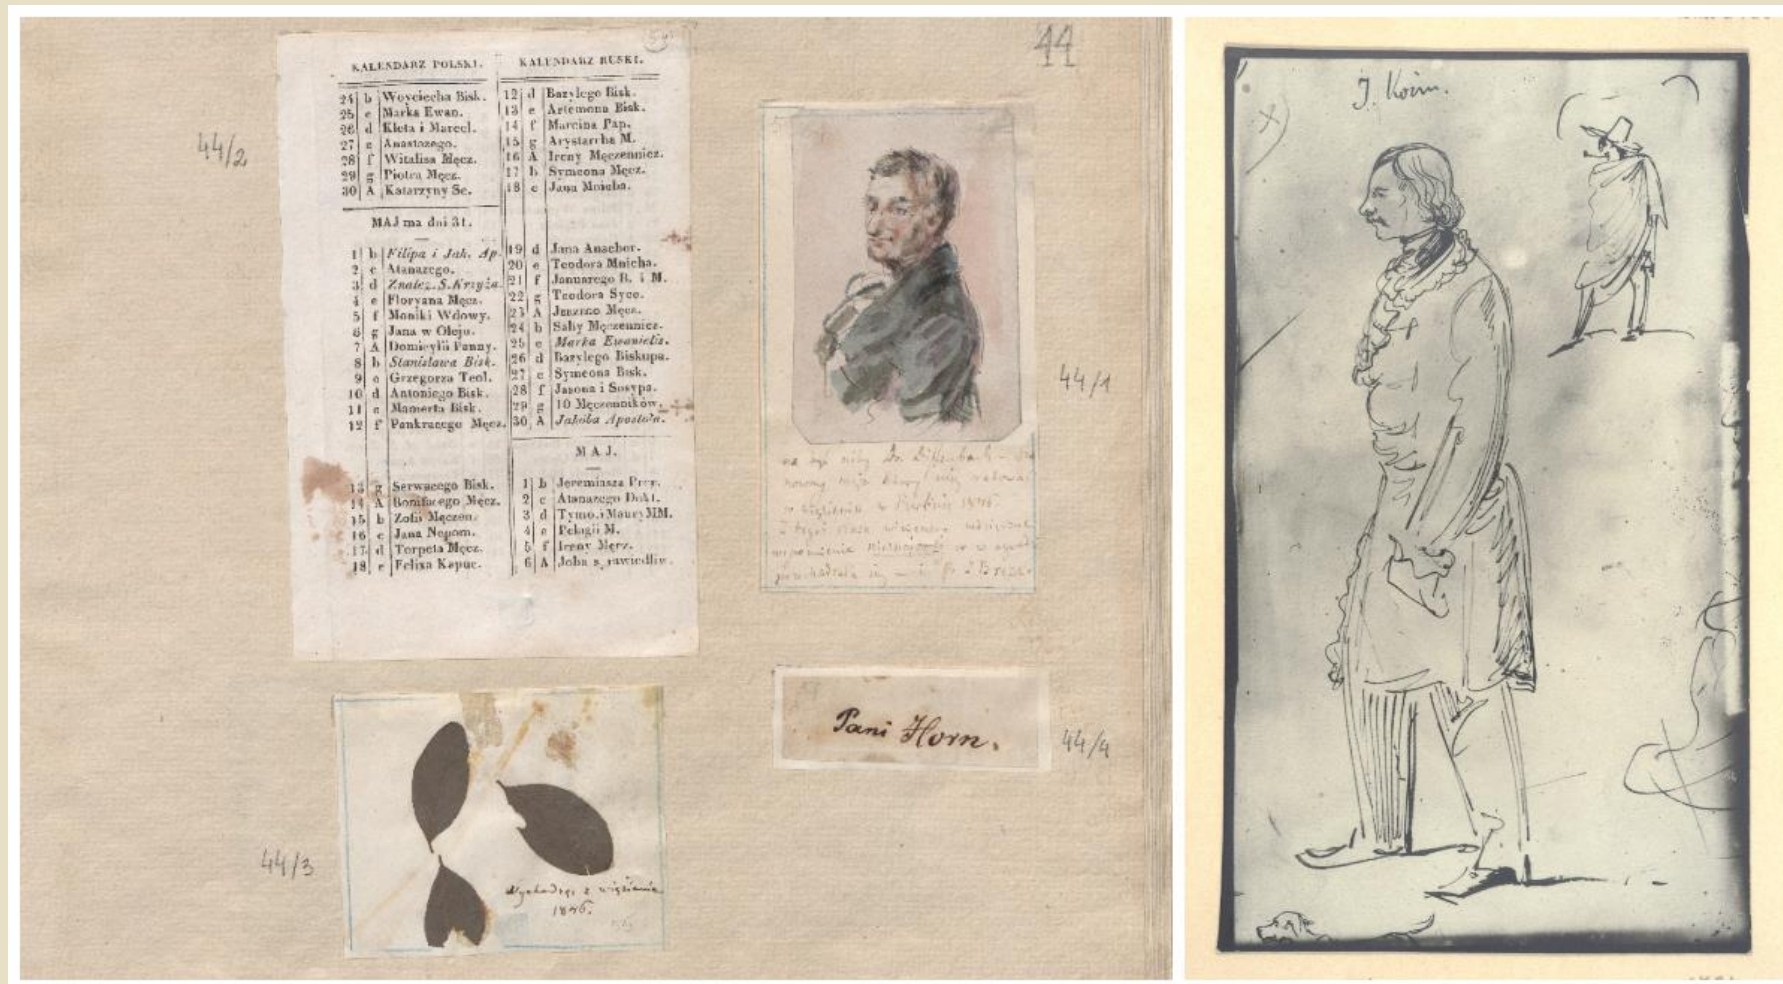 44
44/2
KALENDARZ POLSKI.
24 b Woyciecha Bisk.
25 c Marka Ewan.
26 d Kleta i Marcel.
27 e Anastazego.
28 f Witalisa Męcz.
29 g Piotra Męcz.
30 A Katarzyny Se.
MAJ ma dni 31.
1 b Filipa i Jak. Ap.
2 c Atanazego.
3 d Znalez. S. Krzyża.
4 e Floryana Męcz.
5 f Moniki Wdowy.
6 g Jana w Oleju.
7 A Domicylli Panny.
8 b Stanisława Bisk.
9 c Grzegorza Teol.
10 d Antoniego Bisk.
11 e Mamerta Bisk.
12 f Pankracego Męcz.
13 g Serwacego Bisk.
14 A Bonifacego Męcz.
15 b Zofii Męczen.
16 c Jana Nepom.
17 d Torpeta Męcz.
18 e Felixa Kapuc.
KALENDARZ RUSKI.
12 d Bazylego Bisk.
13 e Artemona Bisk.
14 f Marcina Pap.
15 g Arystarcha M.
16 A Ireny Męczennicz.
17 b Symeona Męcz.
18 c Jana Mnicha.
19 d Jana Anachor.
20 e Teodora Mnicha.
21 f Januarego B. i M.
22 g Teodora Syce.
23 A Jerzego Męcz.
24 b Saby Męczennicz.
25 c Marka Ewanielis.
26 d Bazylego Biskupa.
27 e Symeona Bisk.
28 f Jasona i Sosypa.
29 g 10 Męczenników.
30 A Jakóba Apostoła.
MAJ.
1 b Jeremiasza Pror.
2 c Atanazego Dokt.
3 d Tymo. i Maury MM.
4 e Pelagii M.
5 f Ireny Męcz.
6 A Joba sprawiedliw.
44/1
w więzieniu w Berlinie 1846
44/3
Wychodząc z więzienia
1846.
Pani Horn.
44/4